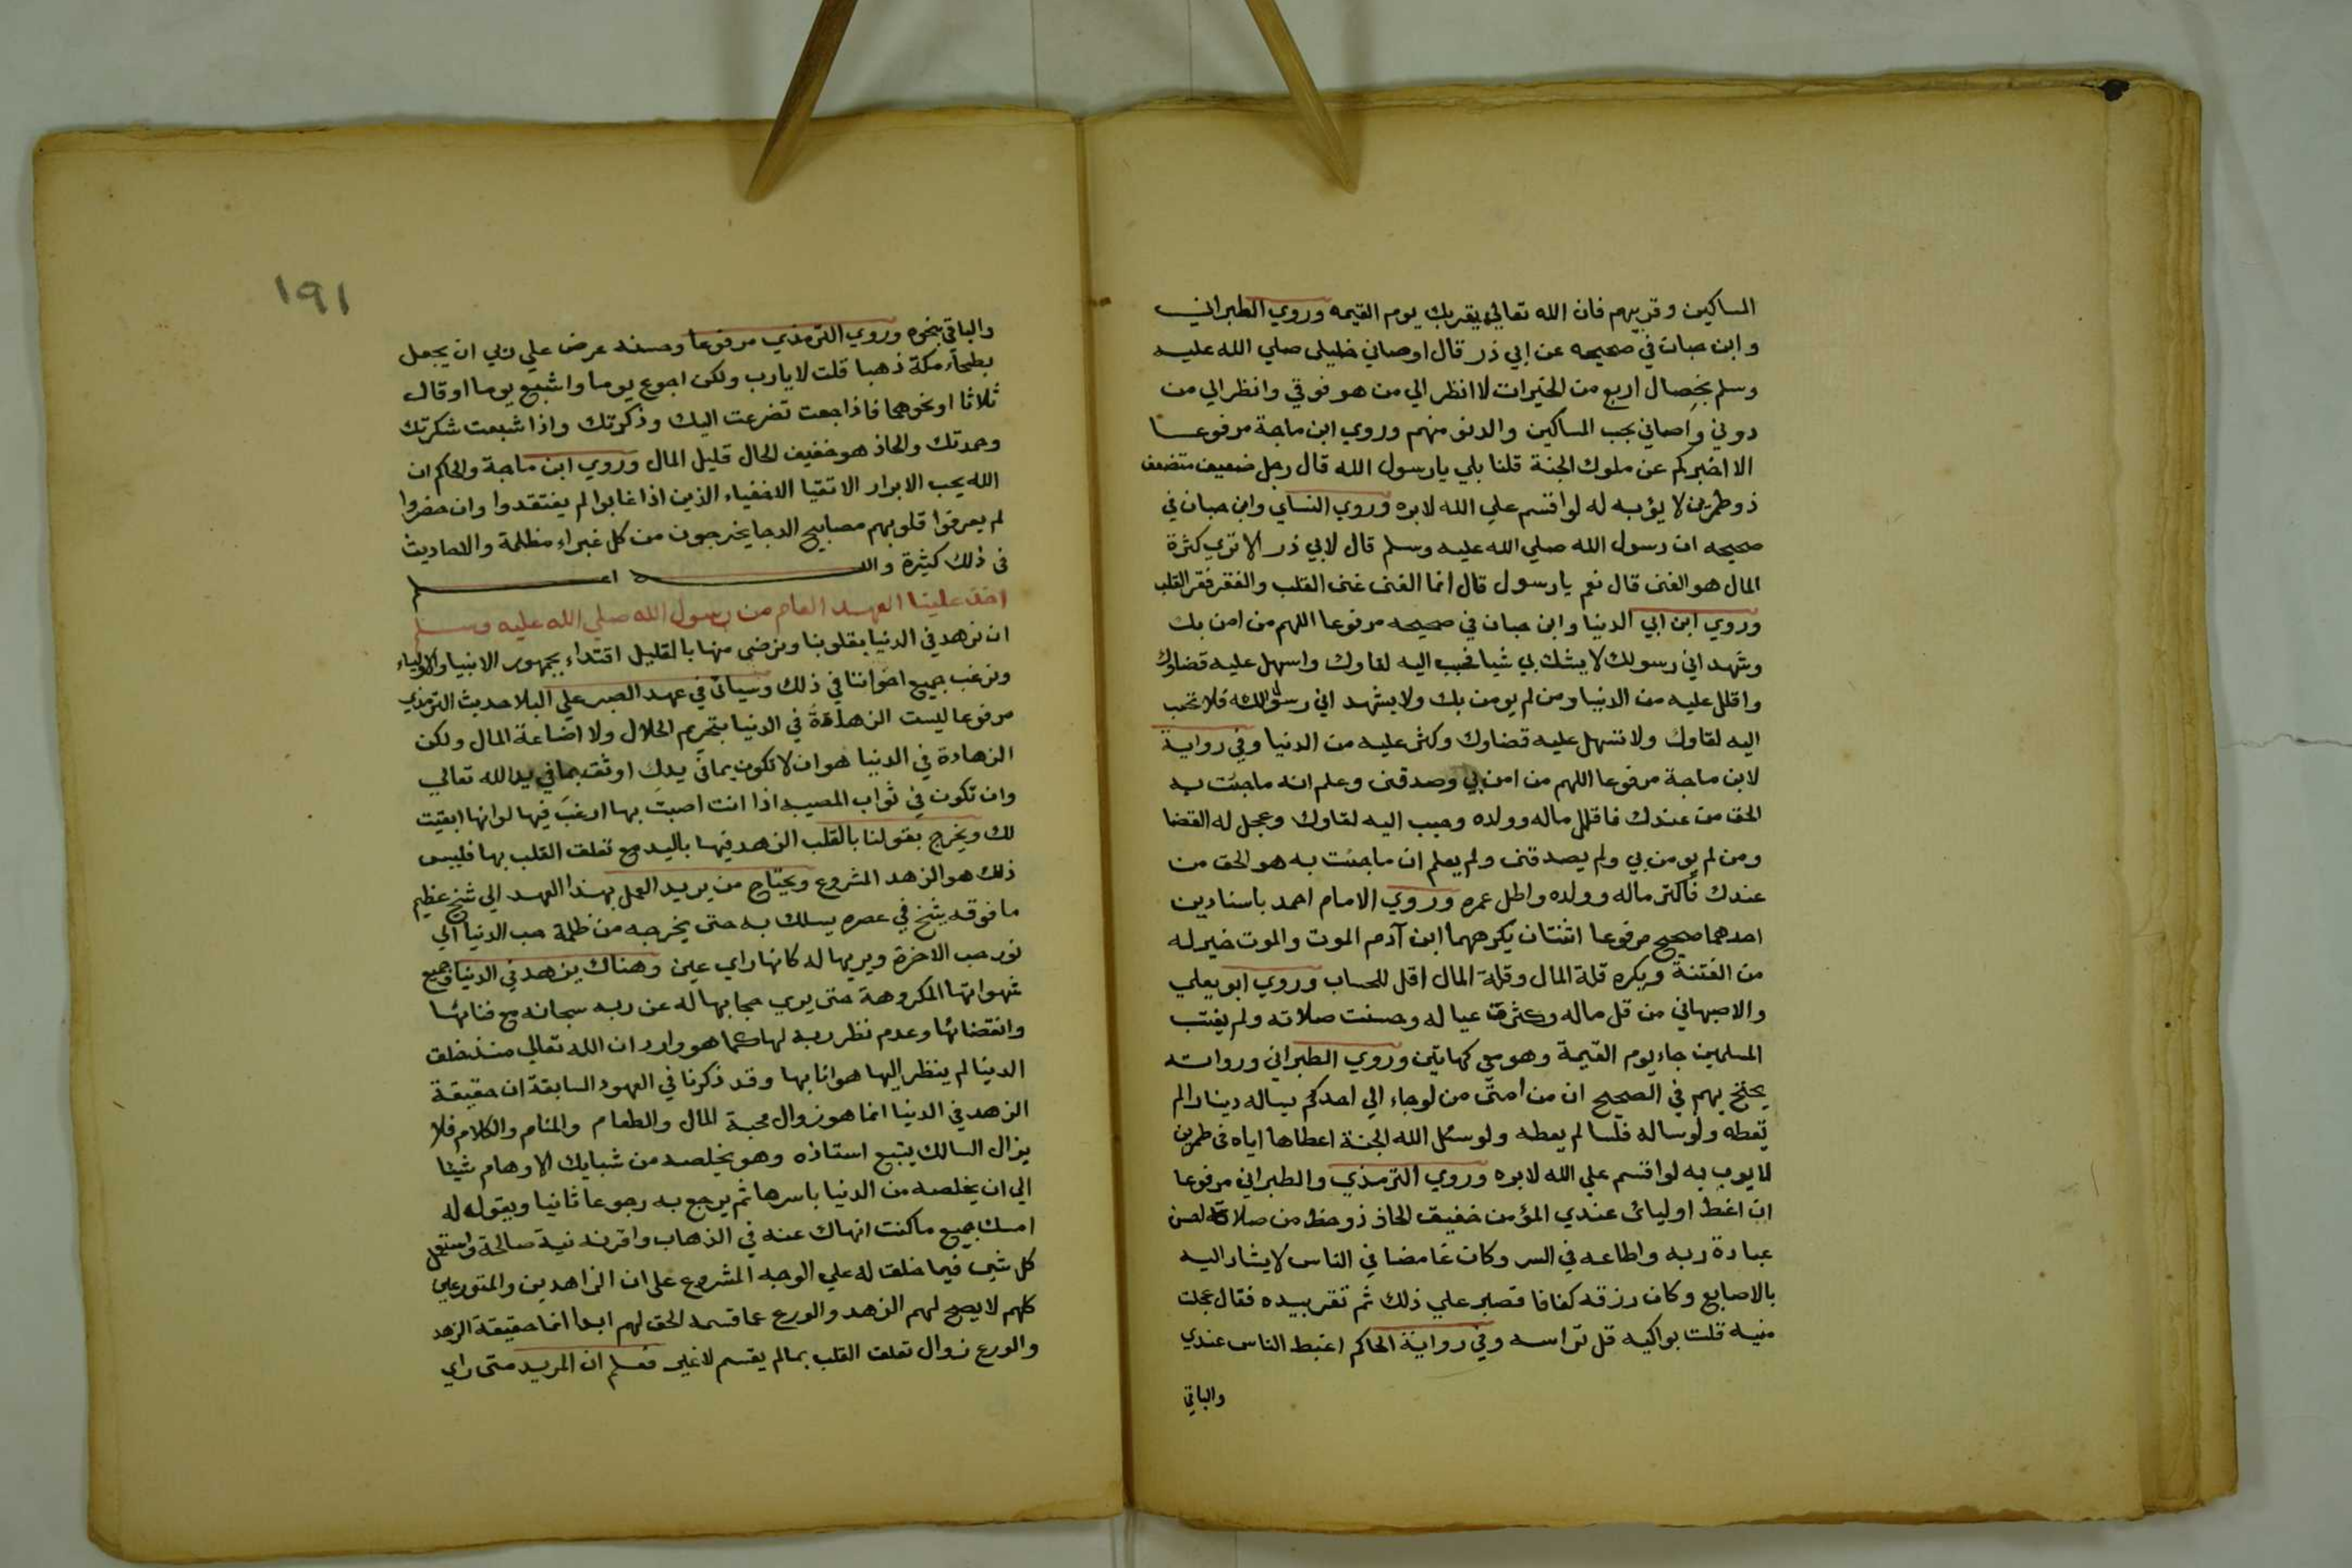 المساكين وقربهم فان الله تعالي يقربك يوم القيمه وروي الطبراني
وابن حبان في صحيحه عن ابي ذر قال اوصاني خليلى صلي الله عليه
وسلم بخصال اربع من الخيرات لا انظر الي من هو فوقي وانظر الي من
دوني واصاني بحب المساكين والدنو منهم وروي ابن ماجة مرفوعا
الا اخبركم عن ملوك الجنة قلنا بلي يا رسول الله قال رجل ضعيف متضعف
ذو طمرين لا يؤبه له لو اقسم علي الله لابره وروي النساي وابن حبان في
صحيحه ان رسول الله صلي الله عليه وسلم قال لابي ذر الا تري كثرة
المال هو الغنى قال نعم يا رسول قال انما الغنى غنى القلب والفقر فقر القلب
وروي ابن ابي الدنيا وابن حبان في صحيحه مرفوعا اللهم من امن بك
وشهد اني رسولك لا يشك بي شيا فحبب اليه لقاوك واسهل عليه قضاوك
واقلل عليه من الدنيا ومن لم يومن بك ولا يشهد اني رسولك فلا تحبب
اليه لقاوك ولا تسهل عليه قضاوك وكثر عليه من الدنيا وفي رواية
لابن ماجة مرفوعا اللهم من امن بي وصدقنى وعلم انه ماجئت به
الحق من عندك فاقلل ماله وولده وحبب اليه لقاوك وعجل له القضا
ومن لم يومن بي ولم يصدقنى ولم يعلم ان ماجئت به هو الحق من
عندك فاكثر ماله وولده واطل عمره وروي الامام احمد باسنادين
احدهما صحيح مرفوعا اثنتان يكرههما ابن آدم الموت والموت خير له
من الفتنة ويكره قلة المال وقلة المال اقل للحساب وروي ابو يعلي
والاصبهاني من قل ماله وكثرت عياله وحسنت صلاته ولم يغتب
المسلمين جاء يوم القيمة وهو معي كهاتين وروي الطبراني ورواته
يحتج بهم في الصحيح ان من امتى من لو جاء الي احدكم يساله دينارا لم
تعطه ولو ساله فلسا لم يعطه ولو سئل الله الجنة اعطاها اياه ذى طمرين
لا يوبه به لو اقسم علي الله لابره وروي الترمذي والطبراني مرفوعا
ان اغبط اوليائى عندي المؤمن خفيف الحاذ ذو حظ من صلاته احسن
عبادة ربه واطاعه في السر وكان غامضا في الناس لا يشار اليه
بالاصابع وكان رزقه كفافا فصبر علي ذلك ثم نقر بيده فقال عجلت
منيه قلت بواكيه قل تراسه وفي رواية الحاكم اغبط الناس عندي
والباقي
١٩١
والباقي بنحوه وروي الترمذي مرفوعا وحسنه عرض علي ربي ان يجعل
بطحاء مكة ذهبا قلت لا يارب ولكن اجوع يوما واشبع يوما او قال
ثلاثا او نحوهما فاذا جعت تضرعت اليك وذكرتك واذا شبعت شكرتك
وحمدتك والحاذ هو خفيف الحال قليل المال وروي ابن ماجة والحاكم ان
الله يحب الابرار الاتقيا الاخفياء الذين اذا غابوا لم يفتقدوا وان حضروا
لم يعرفوا قلوبهم مصابيح الدجا يخرجون من كل غبراء مظلمة والاحاديث
فى ذلك كثيرة والله اعلم
اخذ علينا العهد العام من رسول الله صلي الله عليه وسلم
ان نزهد في الدنيا بقلوبنا ونرضى منها بالقليل اقتداء بجمهور الانبيا والاولياء
ونرغب جميع اخواننا في ذلك وسياتى في عهد الصبر علي البلا حديث الترمذي
مرفوعا ليست الزهادة في الدنيا بتحريم الحلال ولا اضاعة المال ولكن
الزهادة في الدنيا هو ان لا تكون بمافي يدك اوثق بما في يد الله تعالي
وان تكون في ثواب المصيبه اذا انت اصبت بها ارغب فيها لو انها ابقيت
لك ويخرج بقولنا بالقلب الزهد فيها باليد مع تعلق القلب بها فليس
ذلك هو الزهد المشروع ويحتاج من يريد العمل بهذا العهد الي شيخ عظيم
ما فوقه شيخ في عصره يسلك به حتى يخرجه من ظلمة حب الدنيا الي
نور حب الاخرة ويريها له كانها راي عين وهناك يزهد في الدنيا وجميع
شهواتها المكروهة حتى يري حجابها له عن ربه سبحانه مع فنائها
وانقضائها وعدم نظر ربه لها كما هو وارد ان الله تعالي منذ خلق
الدنيا لم ينظر اليها هوانا بها وقد ذكرنا في العهود السابقة ان حقيقة
الزهد في الدنيا انما هو زوال محبة المال والطعام والمنام والكلام فلا
يزال السالك يتبع استاذه وهو يخلصه من شبايك الاوهام شيئا
الي ان يخلصه من الدنيا باسرها ثم يرجع به رجوعا ثانيا ويقول له
امسك جميع ما كنت انهاك عنه في الذهاب وافرد نية صالحة واستعمل
كل شي فيما خلق له علي الوجه المشروع على ان الزاهدين والمتورعين
كلهم لا يصح لهم الزهد والورع عما قسمه الحق لهم ابدا انما حقيقة الزهد
والورع زوال تعلق القلب بما لم يقسم لا غير فعلم ان المريد متى راي